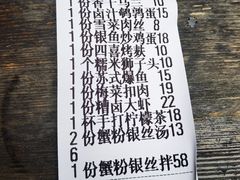 1份香干马兰 10
1份卤汁鹌鹑蛋15
1份雪菜肉丝 8
1份银鱼炒鸡蛋18
1份四喜烤麸 10
1个糯米狮子头10
1份苏式爆鱼 15
1份梅菜扣肉 19
1份糟卤大虾 22
1杯手打柠檬茶18
2份蟹粉银丝汤13
6
1份蟹粉银丝拌58